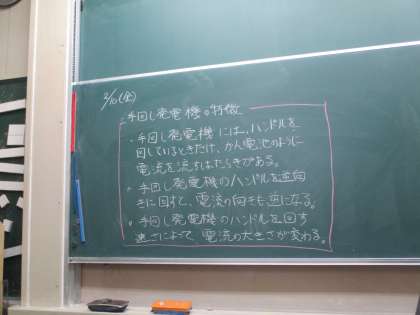 2/10(金)
手回し発電機の特徴
・手回し発電機には、ハンドルを
回しているときだけ、かん電池のように
電流を流すはたらきがある。
・手回し発電機のハンドルを逆向
きに回すと、電流の向きも逆になる。
・手回し発電機のハンドルを回す
速さによって、電流の大きさが変わる。